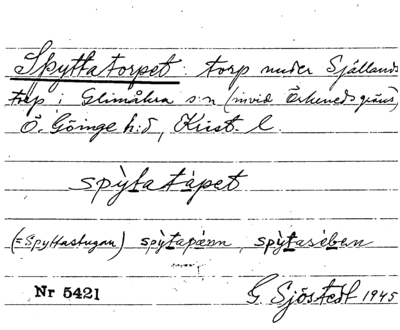 Spyttatorpet: torp under Sjållands
torp i Glimåkra s:n (invid Örkeneds gräns)
Ö. Göinge h:d, Krist. l.
spỳtatȧpet
(=Spyttastugan) spỳtapænn, spỳtasėben
Nr 5421 G. Sjöstedt 1945